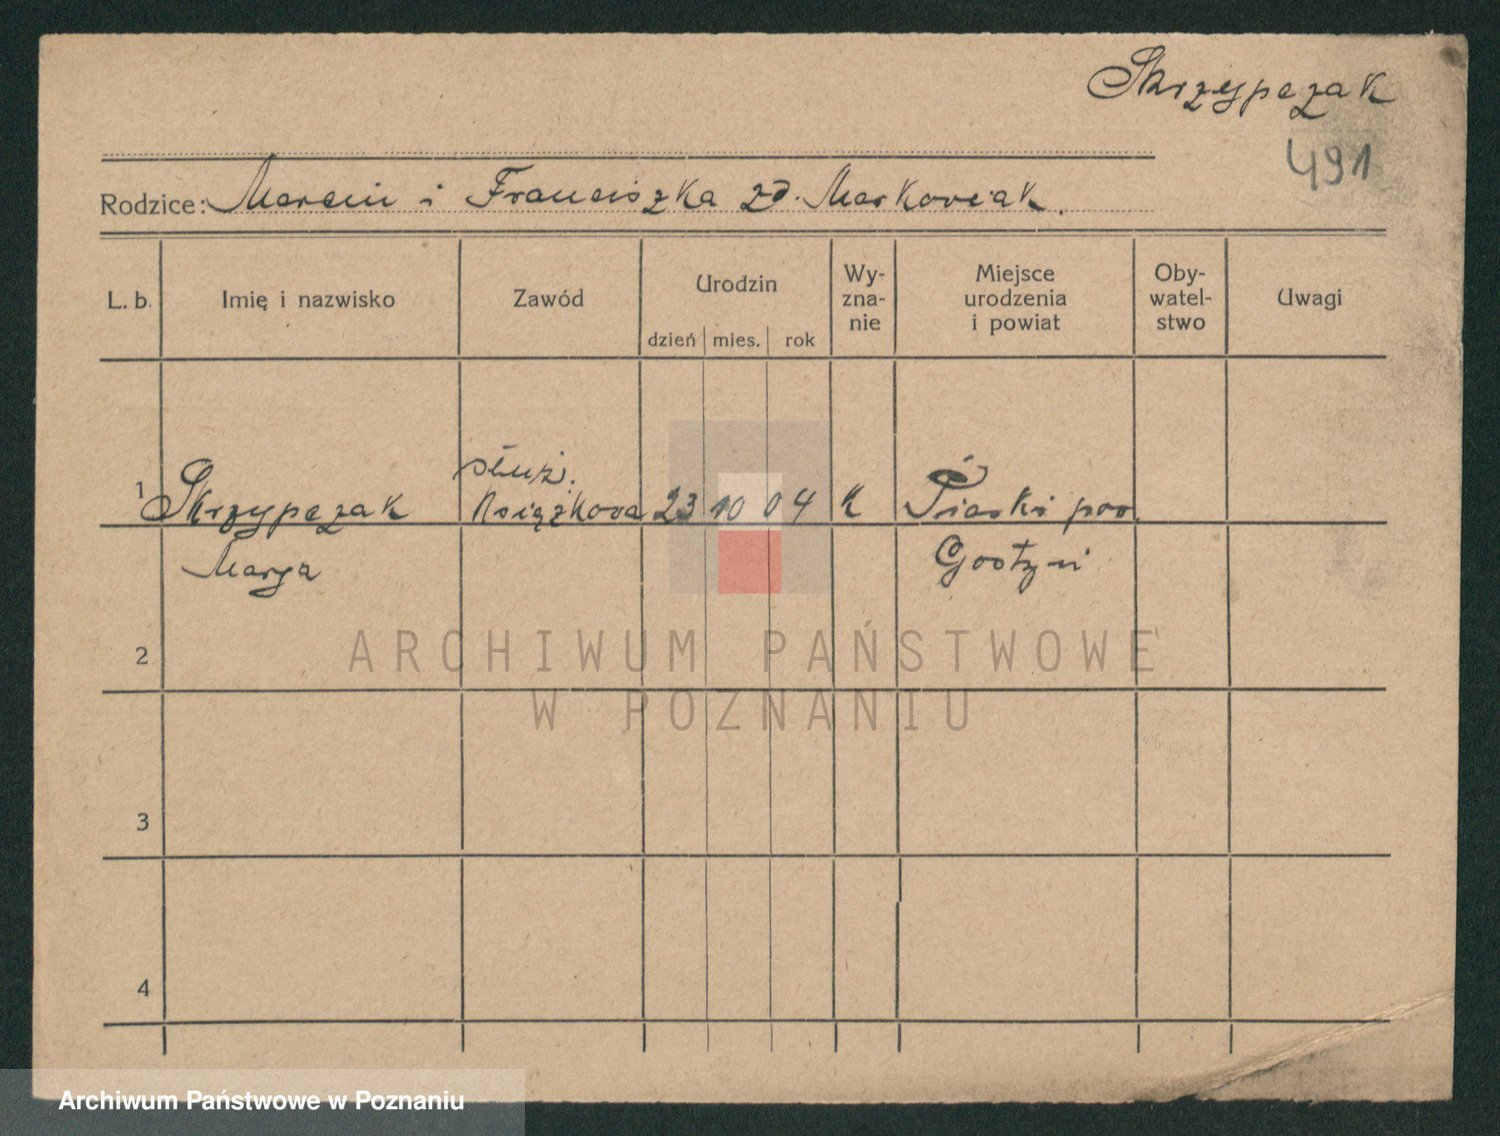 Skrzypczak
491
Rodzice: Marcin i Franciszka zd. Markowiak.
L. b. Imię i nazwisko Zawód Urodzin Wy-zna-nie Miejsce urodzenia i powiat Oby-watel-stwo Uwagi
dzień mies. rok
służ.
1 Skrzypczak Książkowa 23 10 04 K Piaski pow.
Marja Gostyń
2
ARCHIWUM PAŃSTWOWE
W POZNANIU
3
4
Archiwum Państwowe w Poznaniu